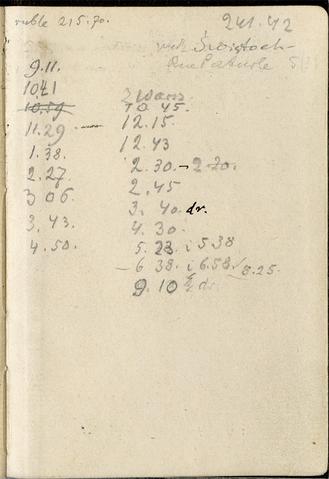 ruble 215.70.
241.42
9.11.
1041
10.59
11.29
1.38.
2.27.
3 06.
3.43.
4.50.
10.45.
12.15.
12.43
2.30 - 2.70.
2.45
3. 40. dr.
4.30.
5. 23. i 5.38
- 6 38. i 6.58 8.25.
9. 10 dr.